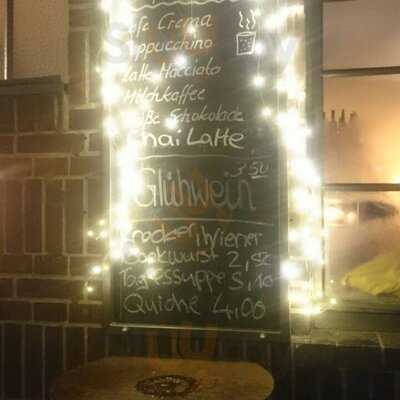 Cafe Crema
Cappuccino
Latte Macciato
Milchkaffee
Heiße Schokolade
Chai Latte
3,50
Glühwein
Knacker/Wiener
Bockwurst 2,50
Tagessuppe 5,10
Quiche 4,00